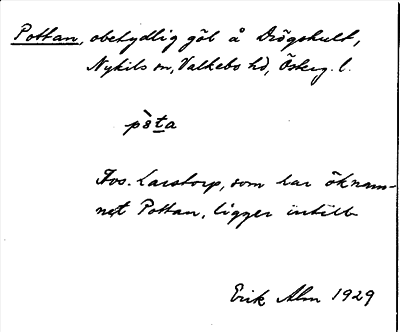 Pottan, obetydlig göl å Drögshult,
Nykils sn, Valkebo hd, Österg. l.
pò̀ta
Tvs. Larstorp, som har öknam-
net Pottan, ligger intill
Erik Alm 1929